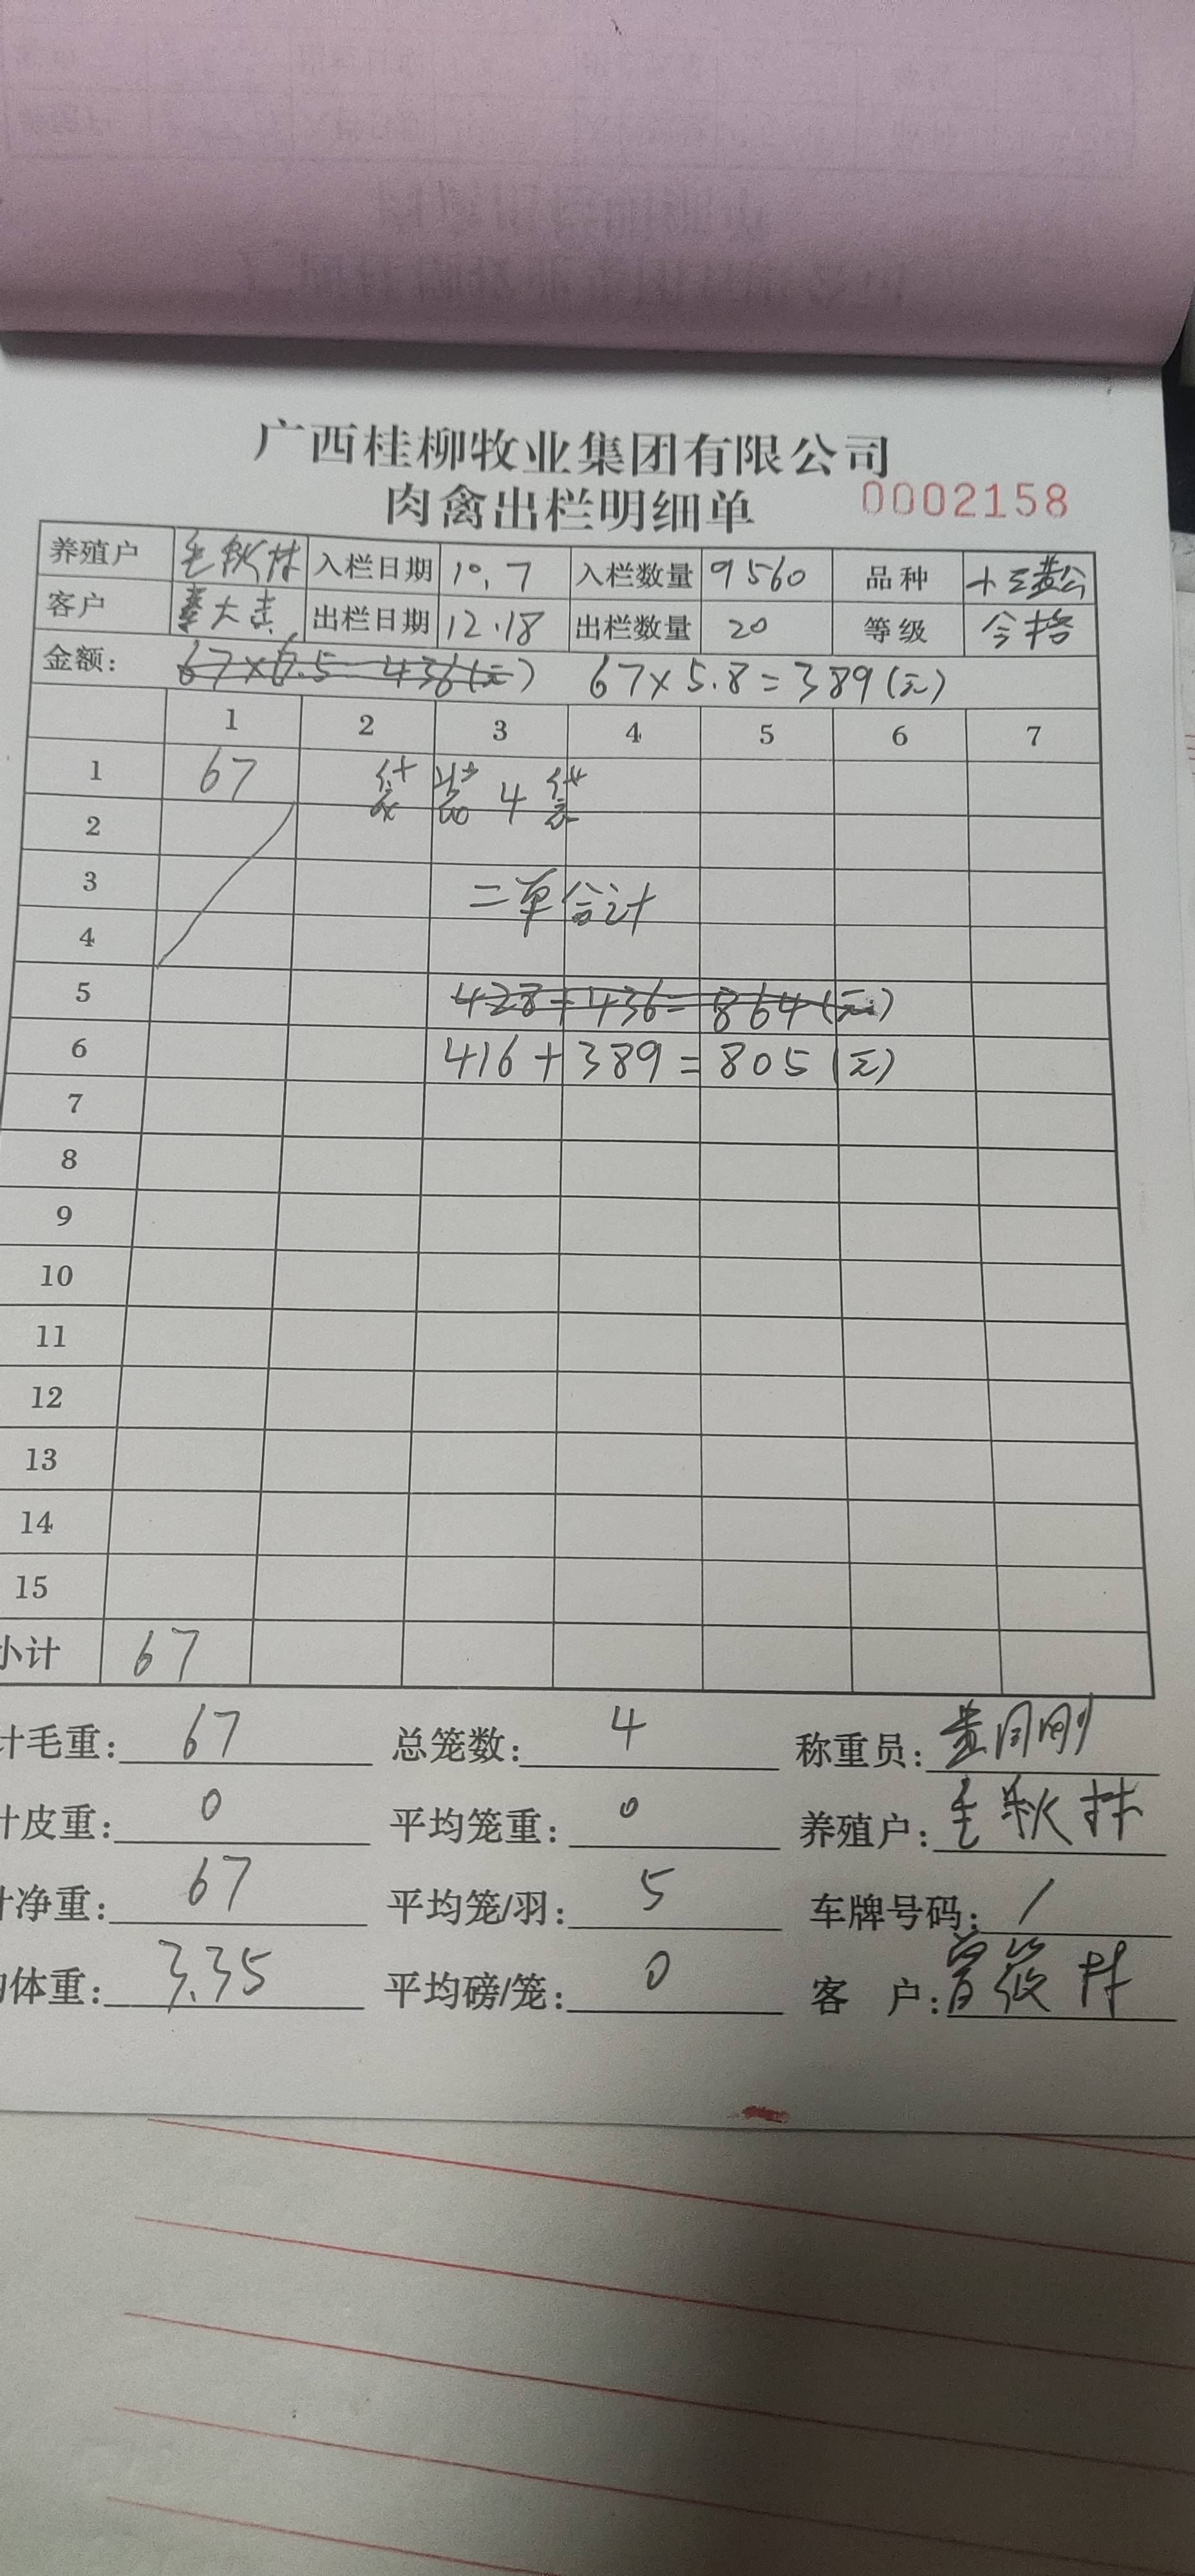 广西桂柳牧业集团有限公司
肉禽出栏明细单 0002158
养殖户 毛秋林 入栏日期 10.7 入栏数量 9560 品种 土三黄公
客户 大 出栏日期 12.18 出栏数量 20 等级 合格
金额: 67×6.5=436(元) 67×5.8=389(元)
1 2 3 4 5 6 7
1 67 袋装4袋
2
3 二单合计
4
5 428+436=864(元)
6 416+389=805(元)
7
8
9
10
11
12
13
14
15
小计 67
计毛重: 67 总笼数: 4 称重员: 刚
计皮重: 0 平均笼重: 0 养殖户: 毛秋林
计净重: 67 平均笼/羽: 5 车牌号码: /
体重: 3.35 平均磅/笼: 0 客 户: 曾筱林